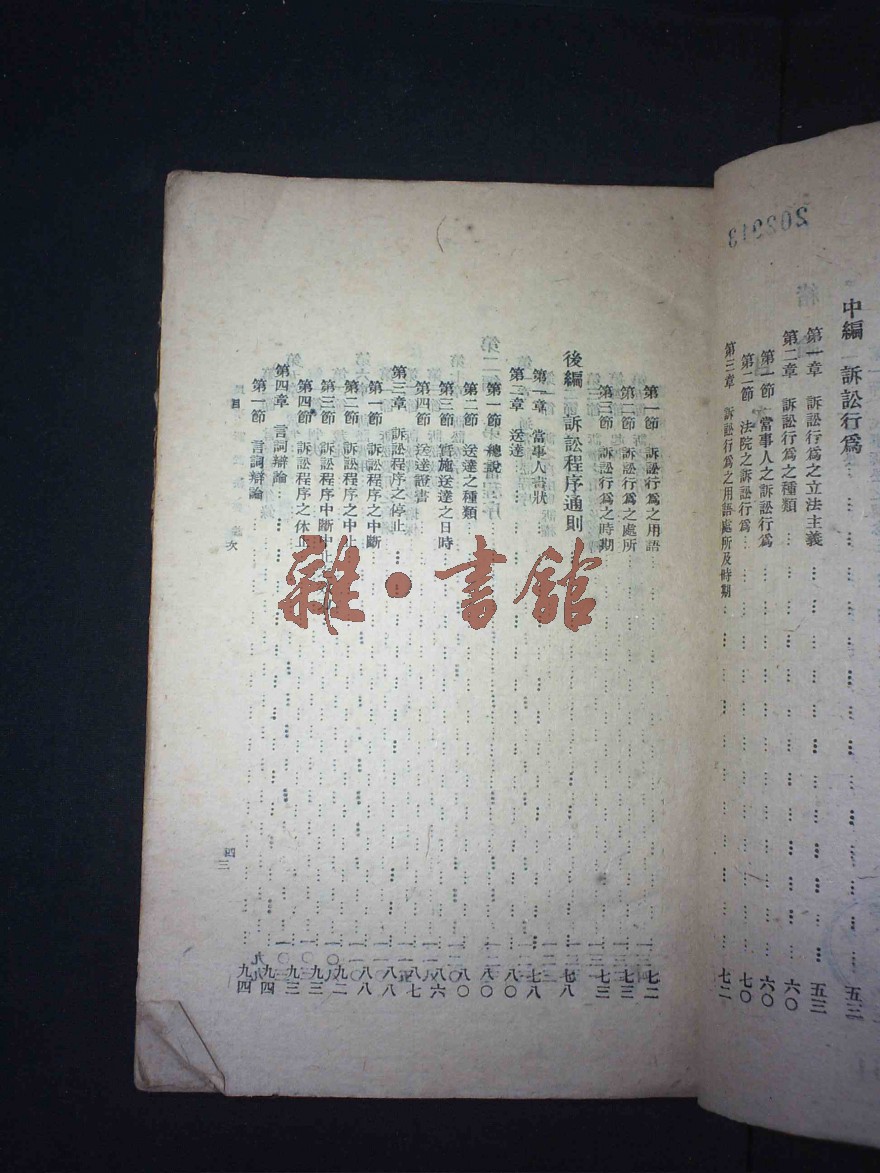 202913
中編 訴訟行爲 五三
第一章 訴訟行爲之立法主義 五三
第二章 訴訟行爲之種類 六〇
第一節 當事人之訴訟行爲 六〇
第二節 法院之訴訟行爲 七〇
第三章 訴訟行爲之用語處所及時期 七二
第一節 訴訟行爲之用語 七二
第二節 訴訟行爲之處所 七三
第三節 訴訟行爲之時期 七三
後編 訴訟程序通則 七八
第一章 當事人書狀 七八
第二章 送達 八〇
第一節 總說 八〇
第二節 送達之種類 八〇
第三節 實施送達之日時 八六
第四節 送達證書 八七
第三章 訴訟程序之停止 八八
第一節 訴訟程序之中斷 八八
第二節 訴訟程序之中止 九二
第三節 訴訟程序中斷中止 九三
第四節 訴訟程序之休止 九三
第四章 言詞辯論 九四
第一節 言詞辯論 九四
目 次
雜·書館